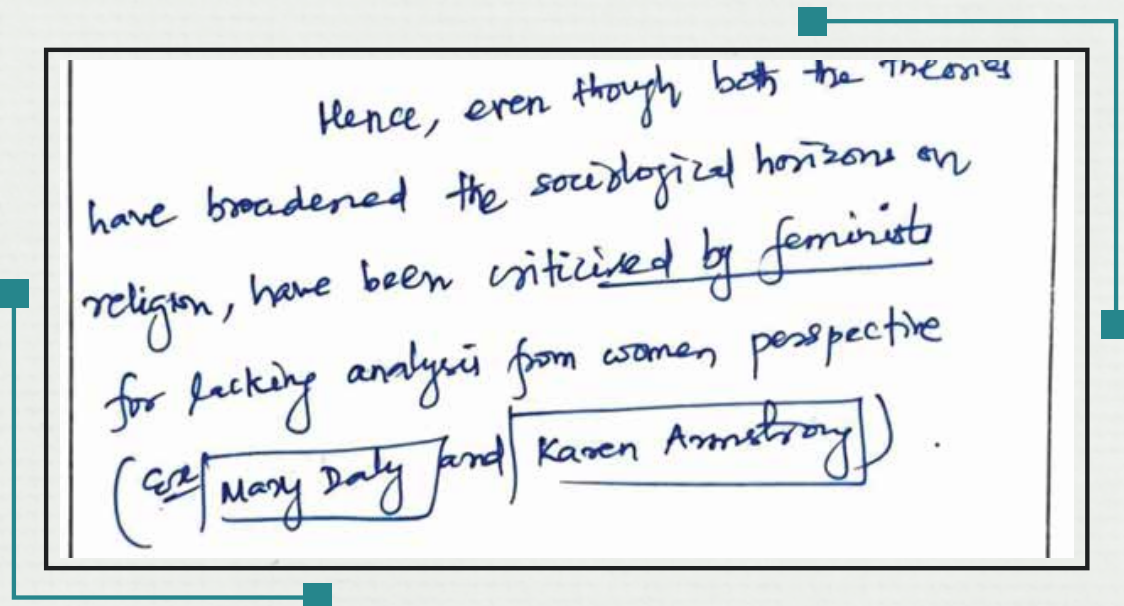 Hence, even though both the theories
have broadened the sociological horizons on
religion, have been criticised by feminists
for lacking analysis from women perspective
(Ex Mary Daly and Karen Armstrong).